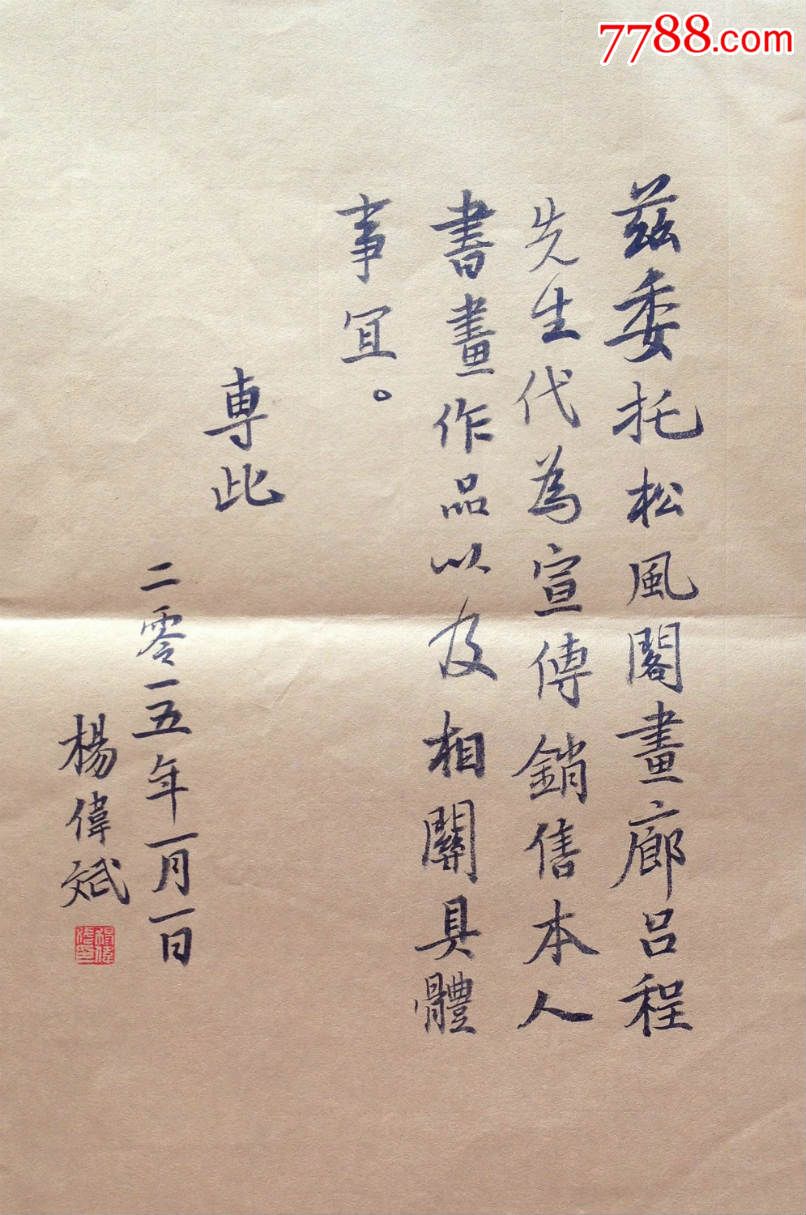 7788.com
茲委托松風閣畫廊吕程
先生代為宣傳銷售本人
書畫作品以及相關具體
事宜。
專此
二零一五年一月一日
楊偉斌